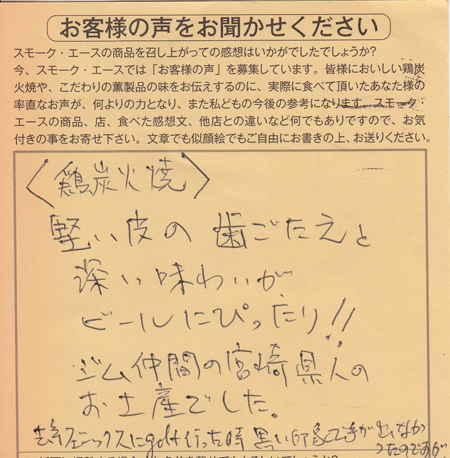 お客様の声をお聞かせください
スモーク・エースの商品を召し上がっての感想はいかがでしたでしょうか?
今、スモーク・エースでは「お客様の声」を募集しています。皆様においしい鶏炭
火焼や、こだわりの薫製品の味をお伝えするのに、実際に食べて頂いたあなた様の
率直なお声が、何よりの力となり、また私どもの今後の参考になります。スモーク・
エースの商品、店、食べた感想文、他店との違いなど何でもありですので、お気
付きの事をお寄せ下さい。文章でも似顔絵でもご自由にお書きの上、お送りください。
〈鶏炭火焼〉
堅い皮の歯ごたえと
深い味わいが
ビールにぴったり!!
ジム仲間の宮崎県人の
お土産でした。
フェニックスにgolf行った時 黒い印象で手が出なかっ
たのですが